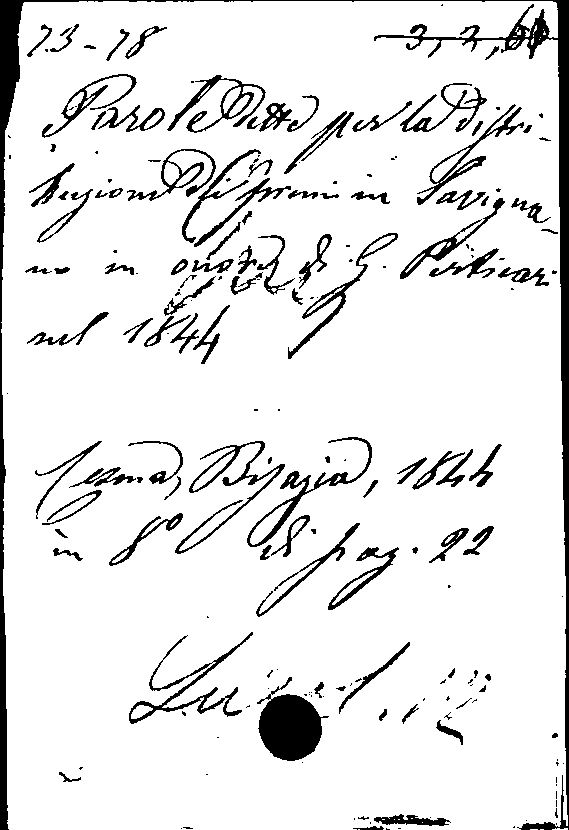 73-78 3, 2, 61
Parole dette per la distri-
buzione di premi in Savigna-
no in onore di G. Perticari
nel 1844
Cesena, Bisazia, 1844
in 8º di pag. 22